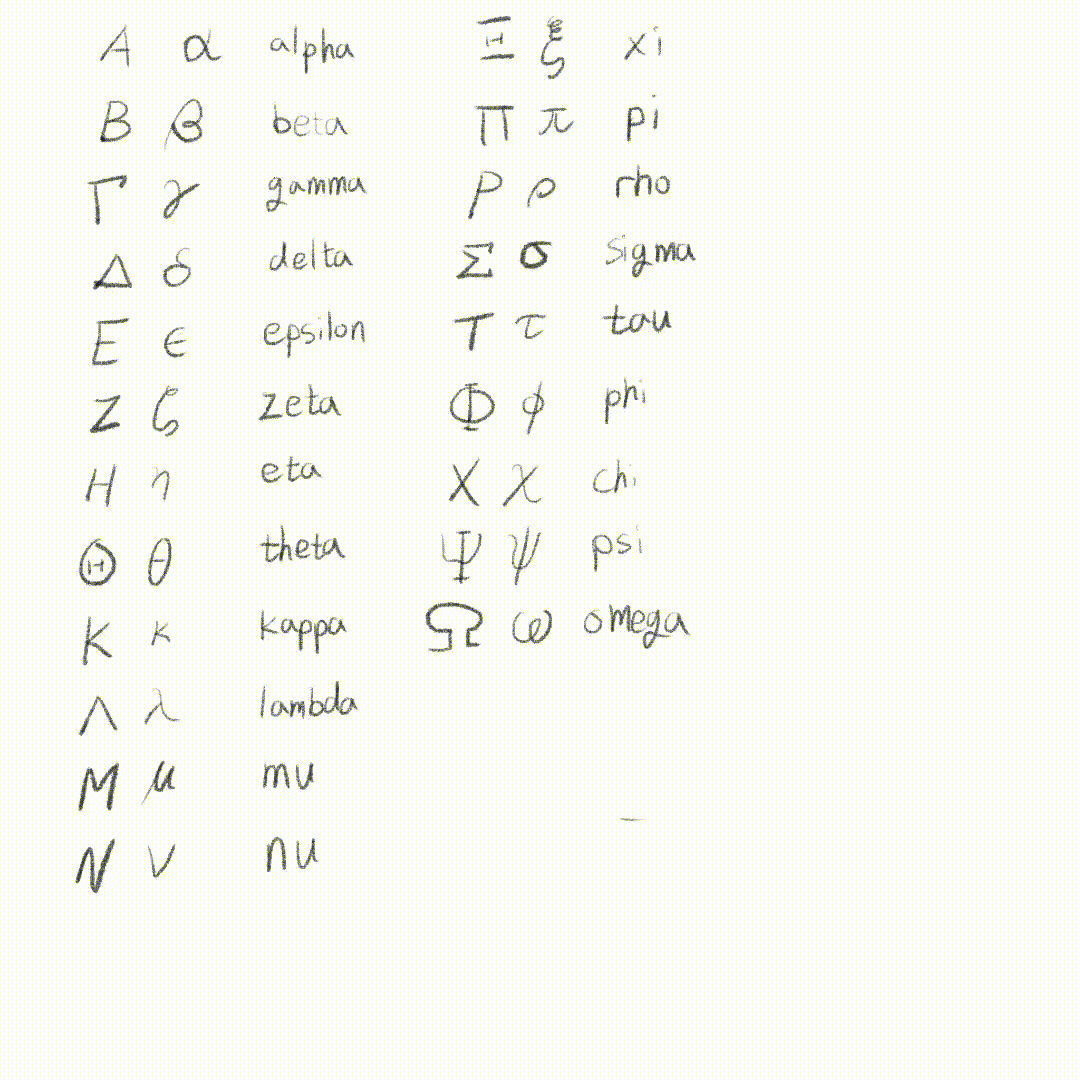 Α α alpha
Β β beta
Γ γ gamma
Δ δ delta
Ε ϵ epsilon
Ζ ζ zeta
Η η eta
Θ θ theta
Κ κ kappa
Λ λ lambda
Μ μ mu
Ν ν nu
Ξ ξ xi
Π π pi
Ρ ρ rho
Σ σ sigma
Τ τ tau
Φ ϕ phi
Χ χ chi
Ψ ψ psi
Ω ω omega